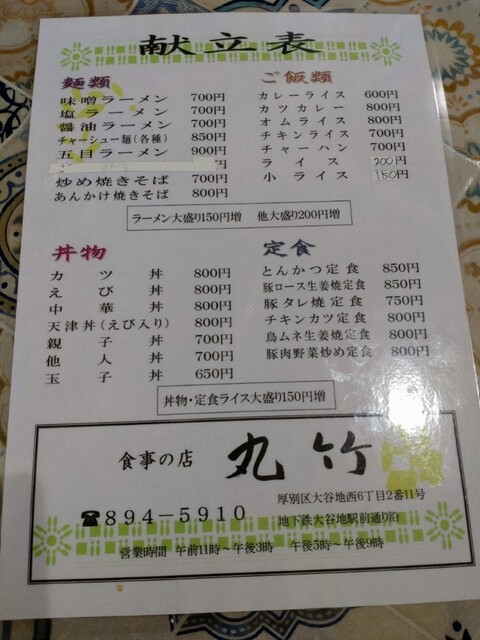 献立表
麺類
味噌ラーメン 700円
塩ラーメン 700円
醤油ラーメン 700円
チャーシュー麺(各種) 850円
五目ラーメン 900円
炒め焼きそば 700円
あんかけ焼きそば 800円
ご飯類
カレーライス 600円
カツカレー 800円
オムライス 800円
チキンライス 700円
チャーハン 700円
ライス 200円
小ライス 150円
ラーメン大盛り150円増 他大盛り200円増
丼物
カツ丼 800円
えび丼 800円
中華丼 800円
天津丼(えび入り) 800円
親子丼 700円
他人丼 700円
玉子丼 650円
定食
とんかつ定食 850円
豚ロース生姜焼定食 850円
豚タレ焼定食 750円
チキンカツ定食 800円
鳥ムネ生姜焼定食 800円
豚肉野菜炒め定食 800円
丼物・定食ライス大盛り150円増
食事の店 丸竹
☎894-5910
厚別区大谷地西6丁目2番11号
地下鉄大谷地駅前通り沿
営業時間 午前11時~午後3時 午後5時~午後9時